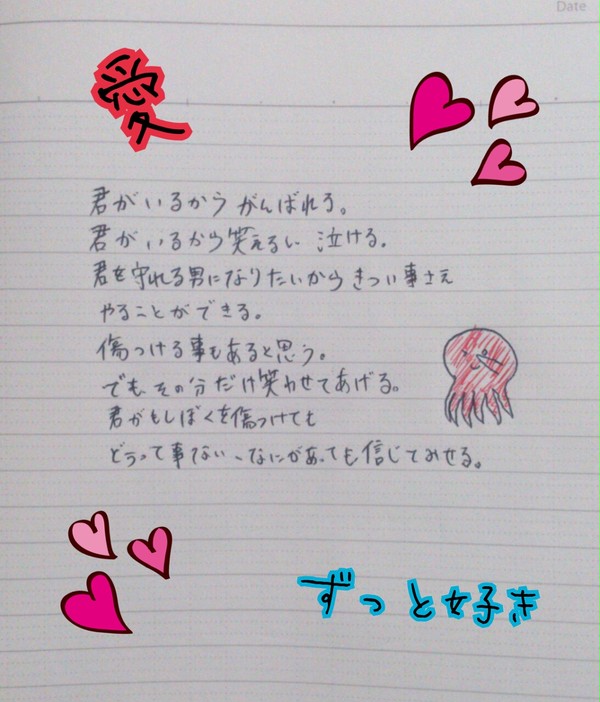 Date
愛
君がいるからがんばれる。
君がいるから笑えるし泣ける。
君を守れる男になりたいからきつい事さえ
やることができる。
傷つける事もあると思う。
でも、その分だけ笑わせてあげる。
君がもしぼくを傷つけても
どうって事ない、なにがあっても信じてみせる。
ずっと好き